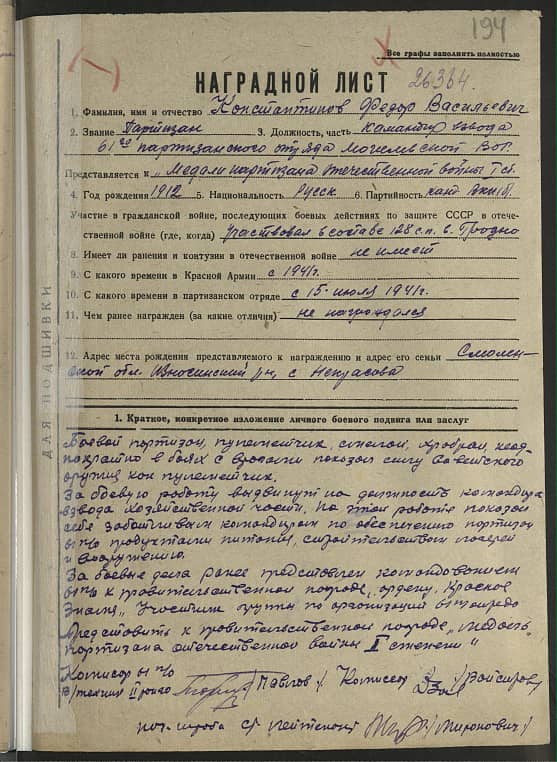 194
Все графы заполнить полностью
НАГРАДНОЙ ЛИСТ 26364.
1. Фамилия, имя и отчество Константинов Федор Васильевич
2. Звание Партизан 3. Должность, часть командир взвода
61го партизанского отряда Могилевской
Представляется к „Медали партизана отечественной войны I ст.
4. Год рождения 1912 5. Национальность Русск 6. Партийность канд
Участие в гражданской войне, последующих боевых действиях по защите СССР в отече-
ственной войне (где, когда) Участвовал в составе 128 с.п. в. Гродно
8. Имеет ли ранения и контузии в отечественной войне не имеет
9. С какого времени в Красной Армии с 1941г.
10. С какого времени в партизанском отряде с 15-июля 1941г.
11. Чем ранее награжден (за какие отличия) не награждался
12. Адрес места рождения представляемого к награждению и адрес его семьи Смолен-
ской обл. Износинский р-н, с Некрасово
ДЛЯ ПОДШИВКИ
1. Краткое, конкретное изложение личного боевого подвига или заслуг
Боевой партизан, пулеметчик, смелый, храбрый, неод-
нократно в боях с врагами показал силу Советского
оружия как пулеметчик.
За боевую работу выдвинут на должность командира
взвода хозяйственной части. На этой работе показал
себя заботливым командиром по обеспечению партизан
61 п/о продуктами питания, строительством лагерей
и вооружению.
За боевые дела ранее представлен командованием
61 п/о к правительственной награде, ордену „Красное
Знамя". Участник группы по организации 61 отряда
Представить к правительственной награде „медаль
партизана отечественной войны I степени"
Комиссар 61 п/о
/Павлов/ Комиссар
нач. штаба ст лейтенант /Миронович/